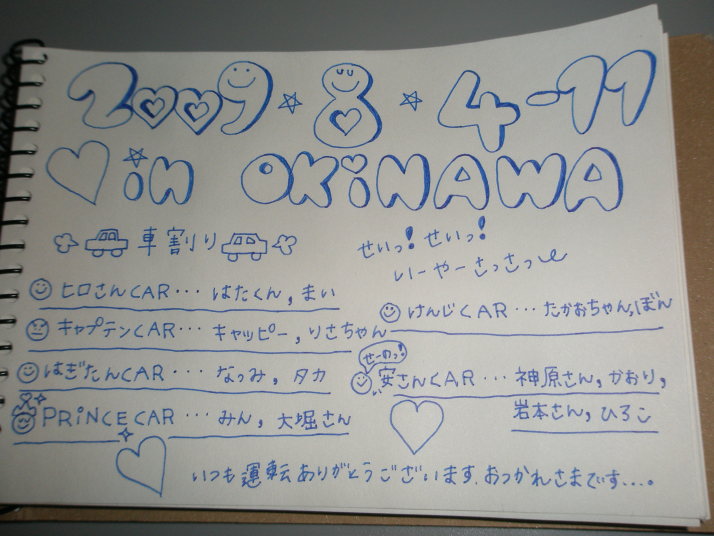 2009☆8☆4-11
♡in OKiNAWA
車割り
せいっ! せいっ!
いーやーさっさっ
ヒロさんCAR… はたくん, まい
キャプテンCAR… キャッピー, りさちゃん
はぎたんCAR… なつみ, タカ
PRiNCE CAR… みん, 大堀さん
けんじCAR… たかおちゃん,ぼん
せーのっ!
安さんCAR… 神原さん, かおり,
岩本さん, ひろこ
いつも運転ありがとうございます.おつかれさまです....。